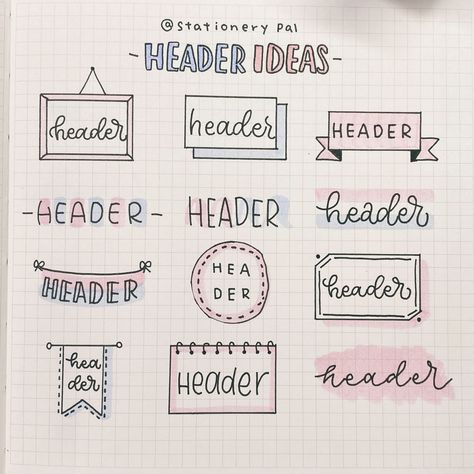 @stationery pal
-HEADER IDEAS-
header
header
HEADER
-HEADER-
HEADER
header
HEADER
HEA
DER
header
hea
der
Header
header